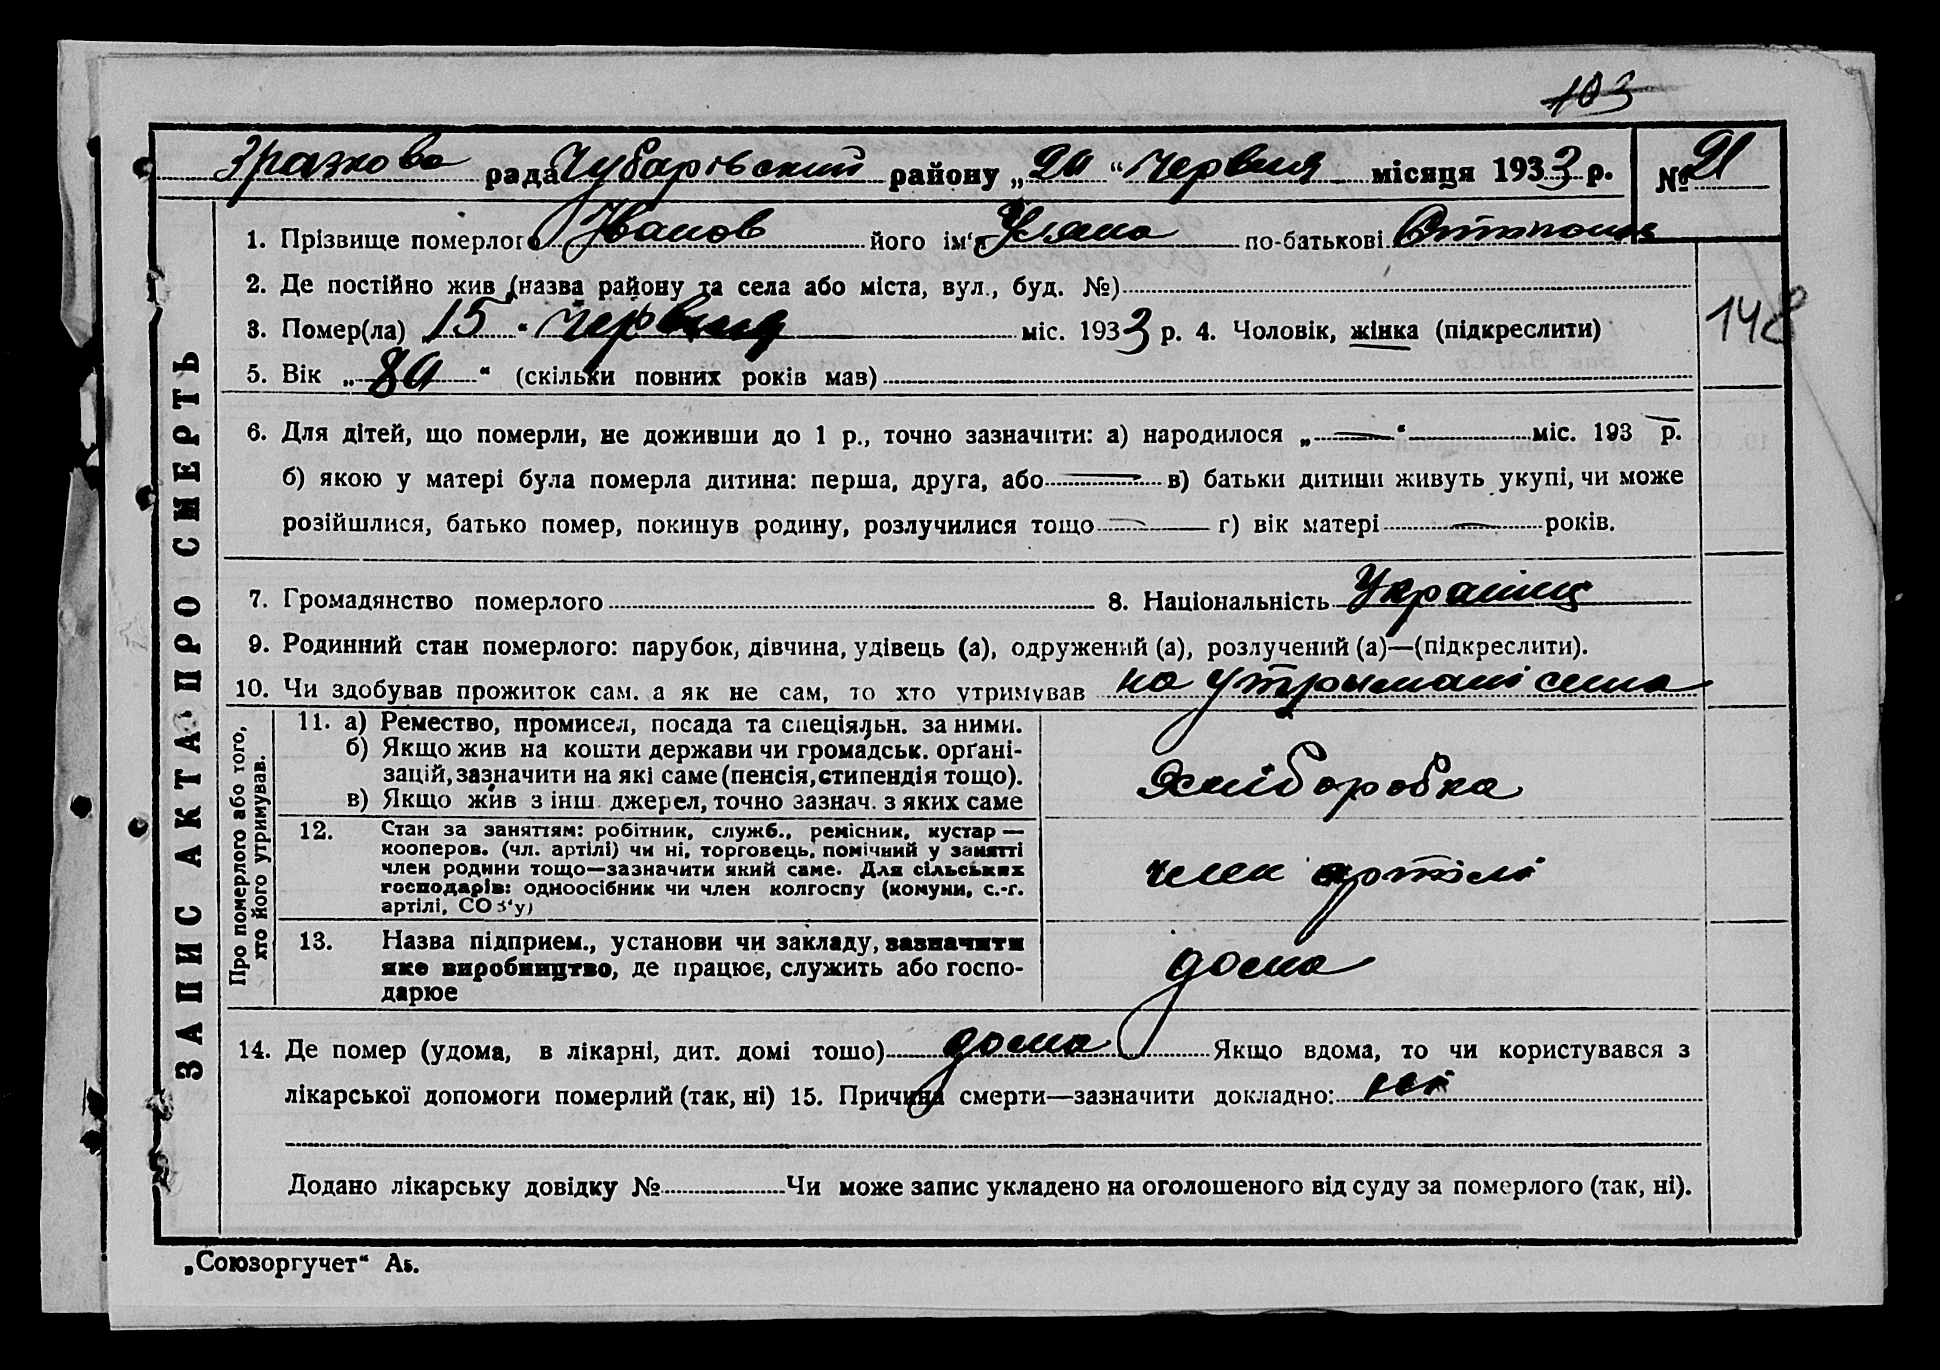 103
Зразкова рада Чубарівський району „20“ червня місяця 1933 р. № 21
ЗАПИС АКТА ПРО СМЕРТЬ
1. Прізвище померлого Іванов його ім'я Уляна по-батькові
2. Де постійно жив (назва району та села або міста, вул., буд. №)
3. Помер(ла) 15 “ червня міс. 1933 р. 4. Чоловік, жінка (підкреслити)
148
5. Вік „80“ (скільки повних років мав)
6. Для дітей, що померли, не доживши до 1 р., точно зазначити: а) народилося „—“ міс. 193 р.
б) якою у матері була померла дитина: перша, друга, або — в) батьки дитини живуть укупі, чи може
розійшлися, батько помер, покинув родину, розлучилися тощо — г) вік матері — років.
7. Громадянство померлого 8. Національність Українц
9. Родинний стан померлого: парубок, дівчина, удівець (а), одружений (а), розлучений (а)—(підкреслити).
10. Чи здобував прожиток сам. а як не сам, то хто утримував на утрымані сина
Про померлого або того, хто його утримував.
11. а) Ремество, промисел, посада та спеціяльн. за ними.
б) Якщо жив на кошти держави чи громадськ. орґані-
зацій, зазначити на які саме (пенсія, стипендія тощо).
в) Якщо жив з інш. джерел, точно зазнач. з яких саме
хліборобка
12. Стан за заняттям: робітник, служб., ремісник, кустар —
кооперов. (чл. артілі) чи ні, торговець, помічний у занятті
член родини тощо—зазначити який саме. Для сільських
господарів: одноосібник чи член колгоспу (комуни, с.-г.
артілі, СОЗ'у)
член артілі
13. Назва підприєм., установи чи закладу, зазначити
яке виробництво, де працює, служить або госпо-
дарює
дома
14. Де помер (удома, в лікарні, дит. домі тощо) дома Якщо вдома, то чи користувався з
лікарської допомоги померлий (так, ні) 15. Причина смерти—зазначити докладно: ні
Додано лікарську довідку № Чи може запис укладено на оголошеного від суду за померлого (так, ні).
„Союзоргучет“ Аз.